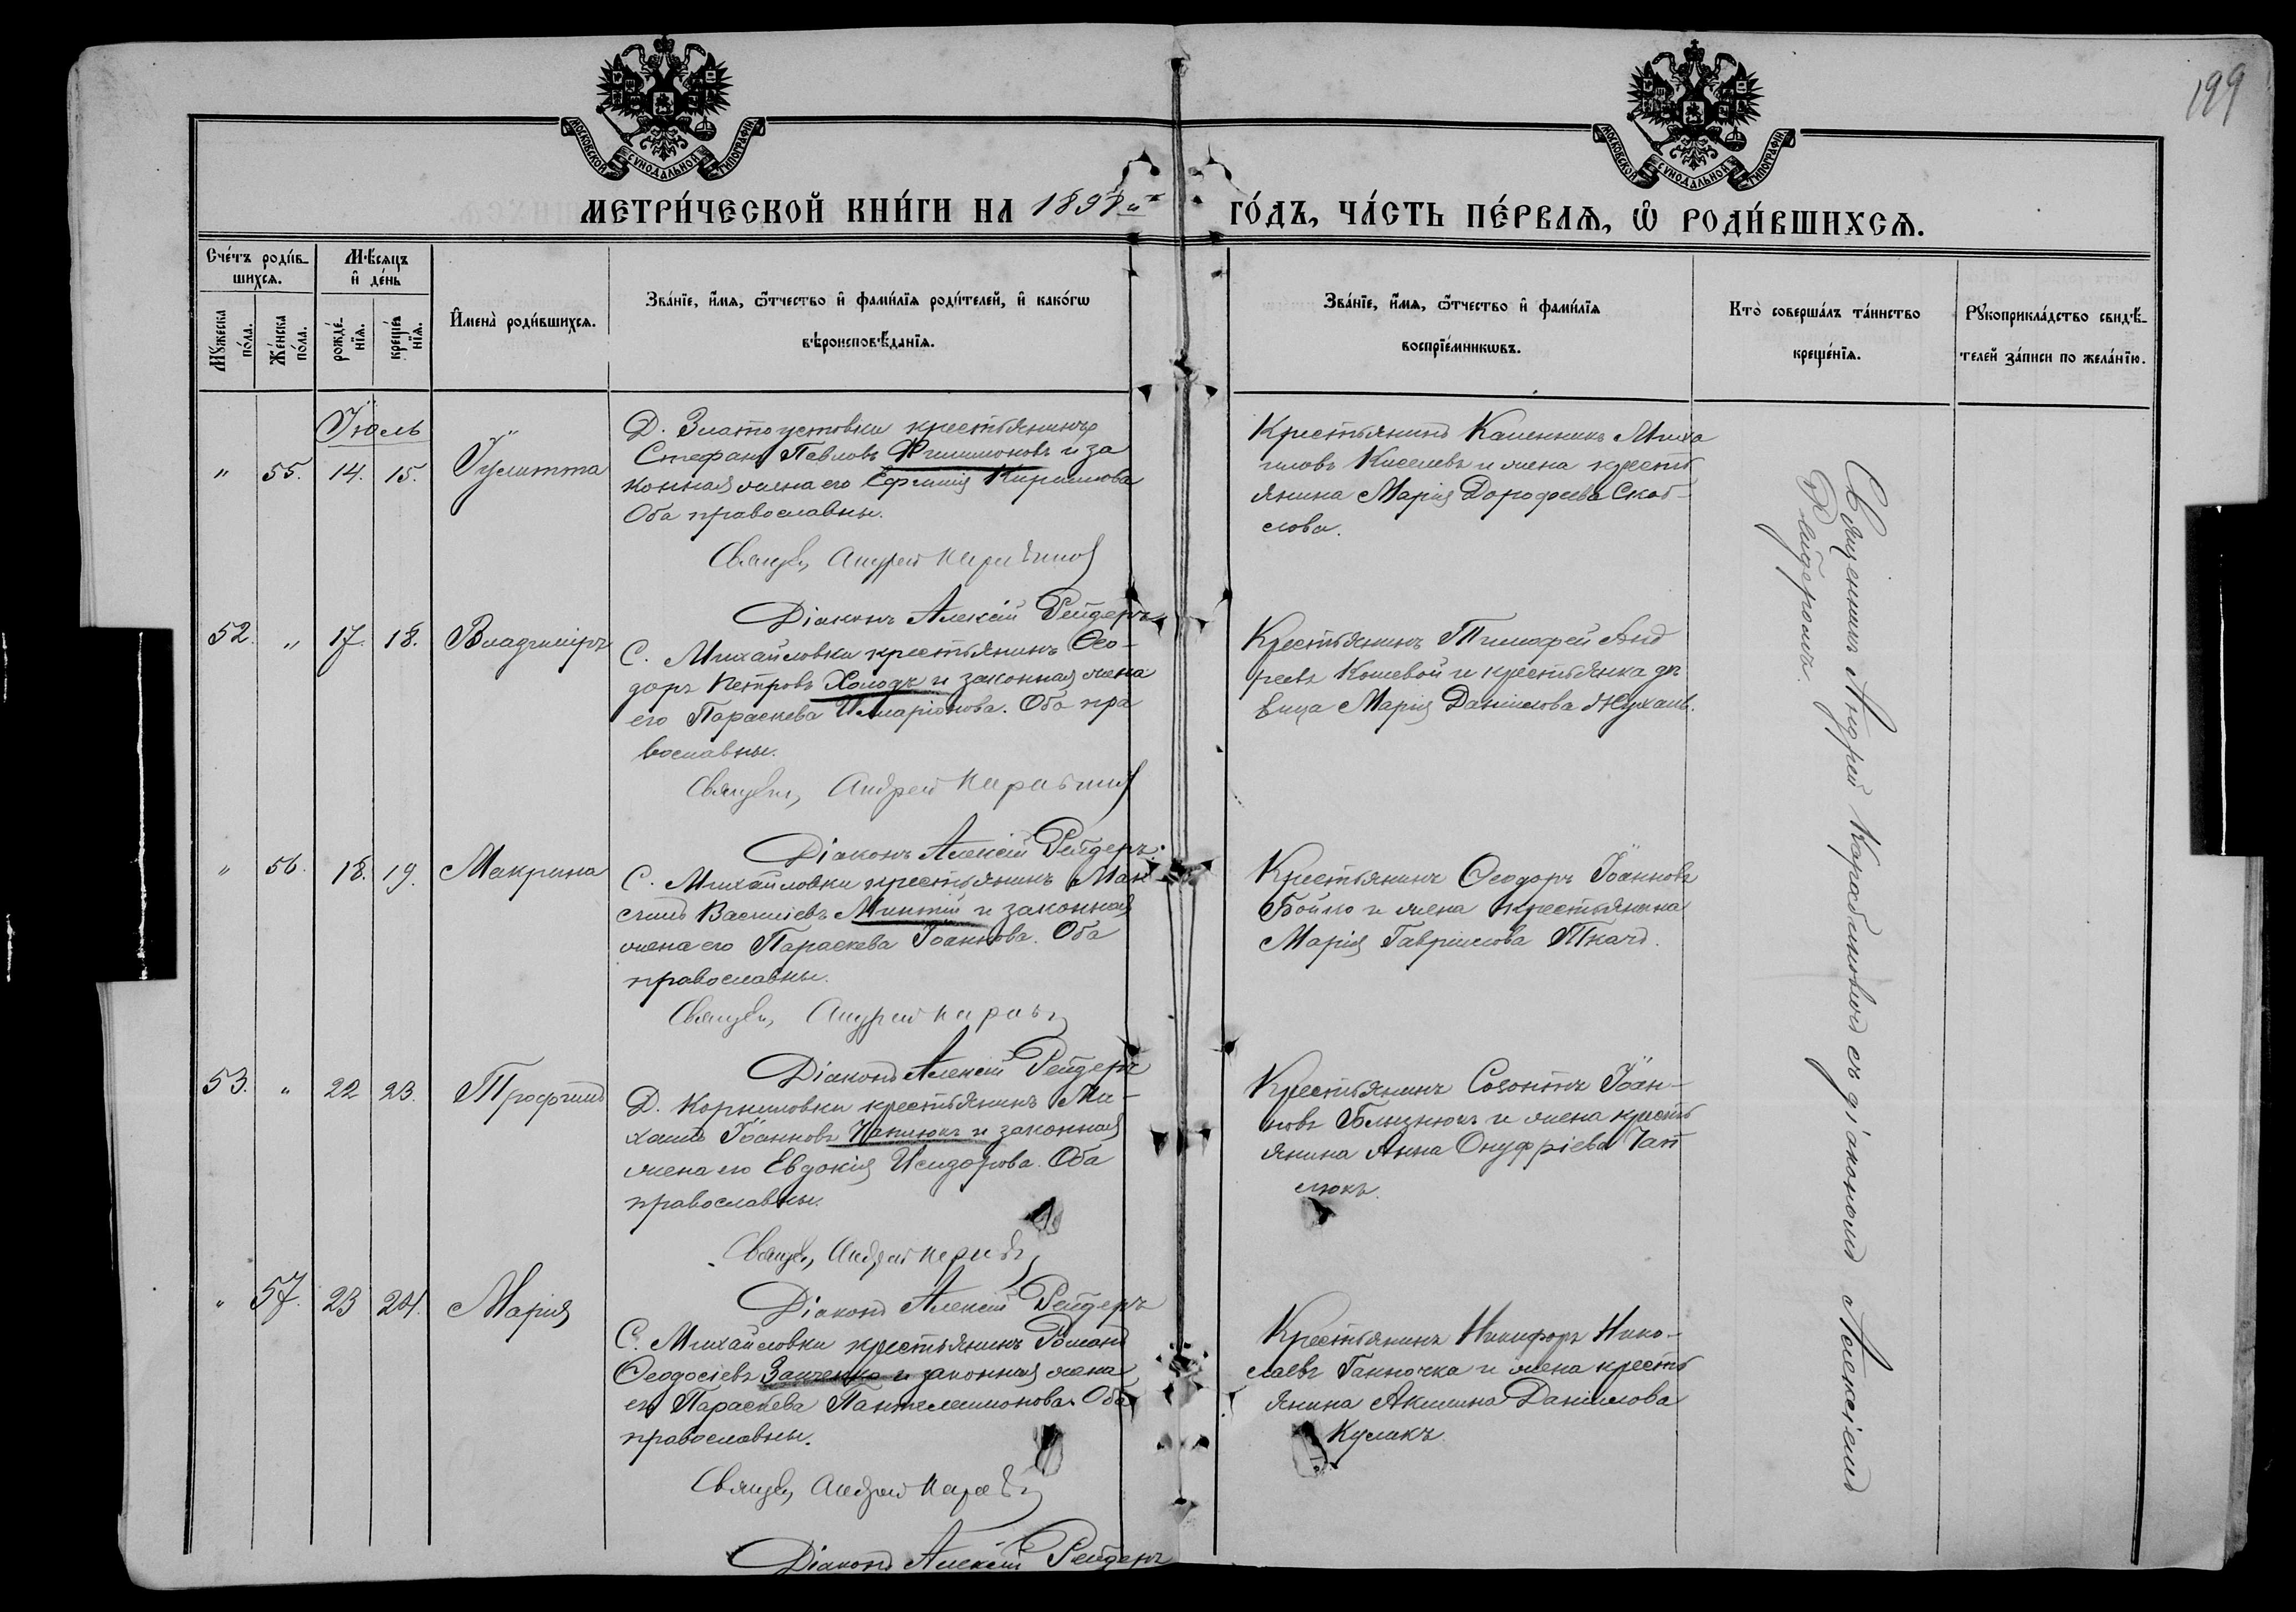 199
МОСКОВСКОЙ СѴНОДАЛЬНОЙ ТИПОГРАФІИ
МОСКОВСКОЙ СѴНОДАЛЬНОЙ ТИПОГРАФІИ
МЕТРИ́ЧЕСКОЙ КНИ́ГИ НА 1898й
ГО́ДЪ, ЧА́СТЬ ПЕ́РВАѦ, Ѡ҆ РОДИ́ВШИХСѦ.
Сче́тъ роди́в-
шихсѧ.
Мѣ́сѧцъ
и҆ де́нь
Мꙋ́жеска по́ла.
Же́нска по́ла.
рожде́-нїѧ.
креще́-нїѧ.
И҆мена̀ роди́вшихсѧ.
Зва́нїе, и҆́мѧ, ѻ҆́тчество и҆ фами́лїѧ роди́телей, и҆ како́гѡ
вѣроисповѣ́данїѧ.
Зва́нїе, и҆́мѧ, ѻ҆́тчество и҆ фами́лїѧ
воспрїе́мникѡвъ.
Кто̀ соверша́лъ та́инство
креще́нїѧ.
Рꙋкоприкла́дство свидѣ́-
телей за́писи по жела́нїю.
Іюль
" 55. 14. 15. Іулитта
Д. Златоустовки крестьянинъ
Стефанъ Павловъ Филимоновъ и за
конная жена его Ефимія Кирилова
Оба православны.
Священ. Андрей Караблинов
Діаконъ Алексій Рейдеръ
Крестьянинъ Калинникъ Миха
иловъ Киселевъ и жена кресть
янина Марія Дорофеева Скоб-
лова.
52. " 17. 18. Владиміръ
С. Михайловки крестьянинъ Ѳео-
доръ Петровъ Холодъ и законная жена
его Параскева Илларіонова. Оба пра
вославны.
Священ. Андрей Караблинов
Діаконъ Алексій Рейдеръ.
Крестьянинъ Тимофей Анд
реевъ Кошевой и крестьянка дѣ
вица Марія Данилова Жухаль.
" 56. 18. 19. Макрина
С. Михайловки крестьянинъ Мак
симъ Василіевъ и законная
жена его Параскева Іоаннова. Оба
православны.
Священ. Андрей Караб.
Діаконъ Алексій Рейдеръ
Крестьянинъ Ѳеодоръ Іоанновъ
Бойко и жена крестьянина
Марія Гаврилова Ткачъ.
53. " 22 23. Трофимъ
Д. Корниловки крестьянинъ Ми-
хаилъ Іоанновъ и законная
жена его Евдокія Исидорова. Оба
православны.
Священ. Андрей Караб.
Діаконъ Алексій Рейдеръ
Крестьянинъ Созонтъ Іоан-
новъ Близнюкъ и жена кресть
янина Анна Онуфріева Чап
люкъ.
" 57. 23 24. Марія
С. Михайловки крестьянинъ Романъ
Ѳеодосіевъ Заиченко и законная жена
его Параскева Пантелеимонова. Оба
православны.
Священ. Андрей Караб.
Діаконъ Алексій Рейдеръ
Крестьянинъ Никифоръ Нико-
лаевъ Ганночка и жена кресть
янина Акилина Данилова
Кулакъ.
Священникъ Андрей Караблиновъ съ діакономъ Алексіемъ
Рейдеромъ.